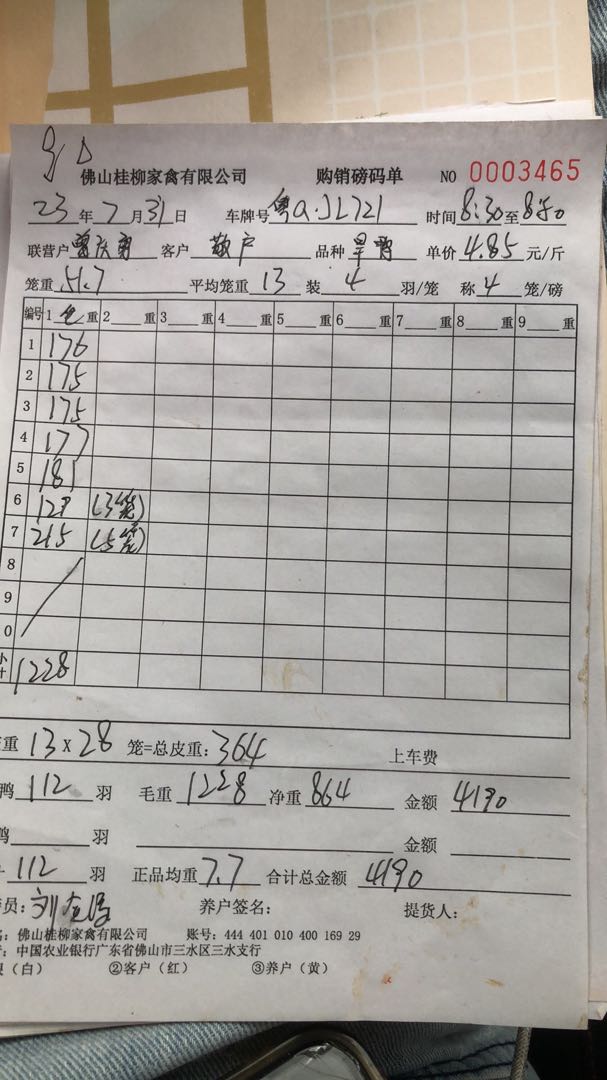 佛山桂柳家禽有限公司 购销磅码单 NO 0003465
23年7月31日 车牌号 粤Q·JL721 时间 8:30至8:50
联营户 客户 散户 品种 单价 4.85 元/斤
笼重 51.7 平均笼重 13 装 4 羽/笼 称 4 笼/磅
编号 1 毛 重 2 重 3 重 4 重 5 重 6 重 7 重 8 重 9 重
1 176
2 175
3 175
4 177
5 181
6 127 (3笼)
7 215 (5笼)
8
9
0
小 1228
重 13×28 笼=总皮重: 364 上车费
鸭 112 羽 毛重 1228 净重 864 金额 4190
鸭 羽 金额
112 羽 正品均重 7.7 合计总金额 4190
员: 养户签名: 提货人:
佛山桂柳家禽有限公司 账号: 444 401 010 400 169 29
中国农业银行广东省佛山市三水区三水支行
(白) ②客户(红) ③养户(黄)